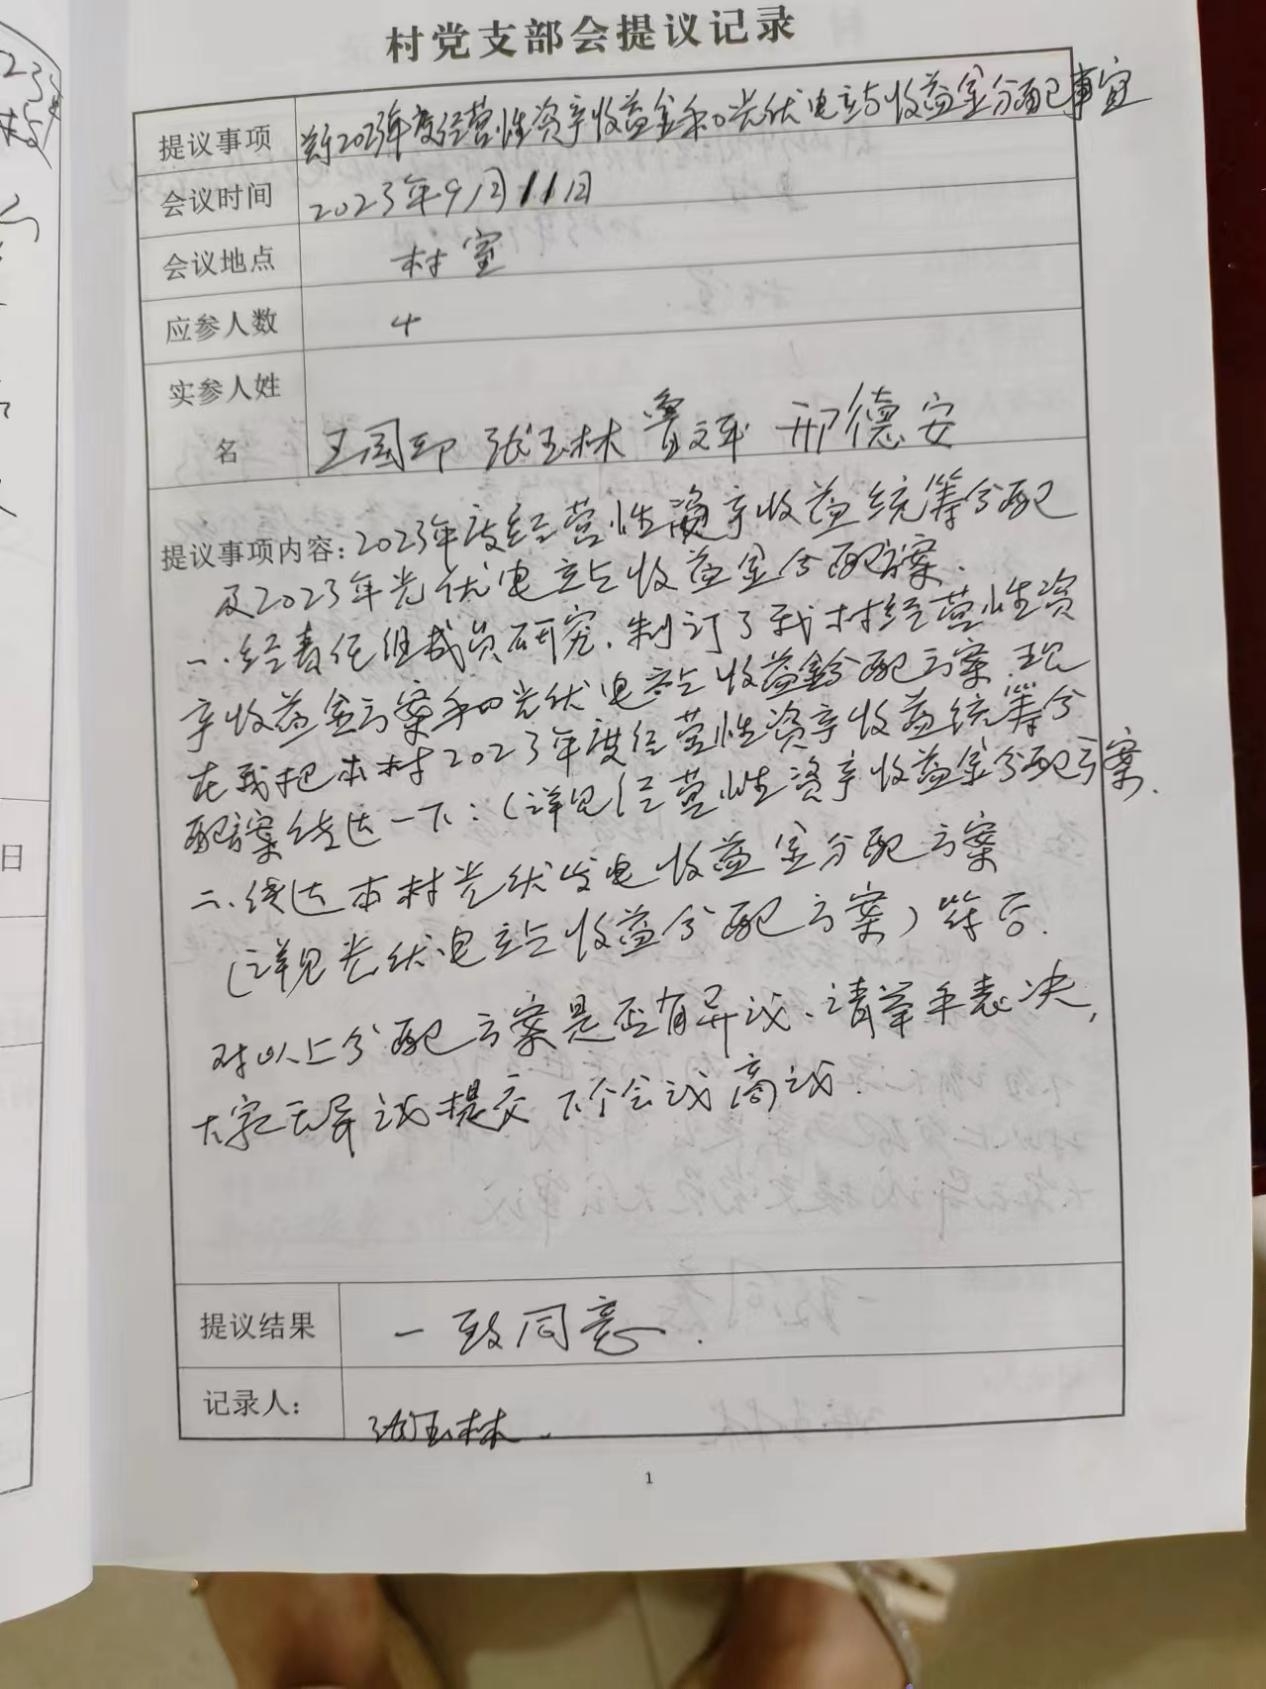 村党支部会提议记录
提议事项 关于2023年度经营性资产收益金和光伏电站收益金分配事宜
会议时间 2023年9月11日
会议地点 村室
应参人数 4
实参人姓
名 王国印 张玉林 曹文军 邢德安
提议事项内容：2023年度经营性资产收益统筹分配
及2023年光伏电站收益金分配方案.
一.经责任组成员研究.制订了我村经营性资
产收益金方案和光伏电站收益金分配方案.现
在我把本村2023年度经营性资产收益统筹分
配方案传达一下:(详见经营性资产收益金分配方案.
二.传达本村光伏发电收益金分配方案
(详见光伏电站收益分配方案)
对以上分配方案是否有异议、请举手表决,
大家无异议提交下个会议商议.
提议结果 一致同意.
记录人： 张玉林.
1
日